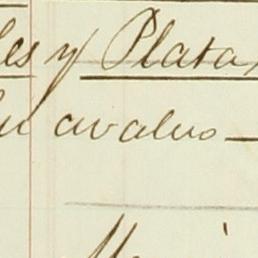 les y Plata
Su avaluo